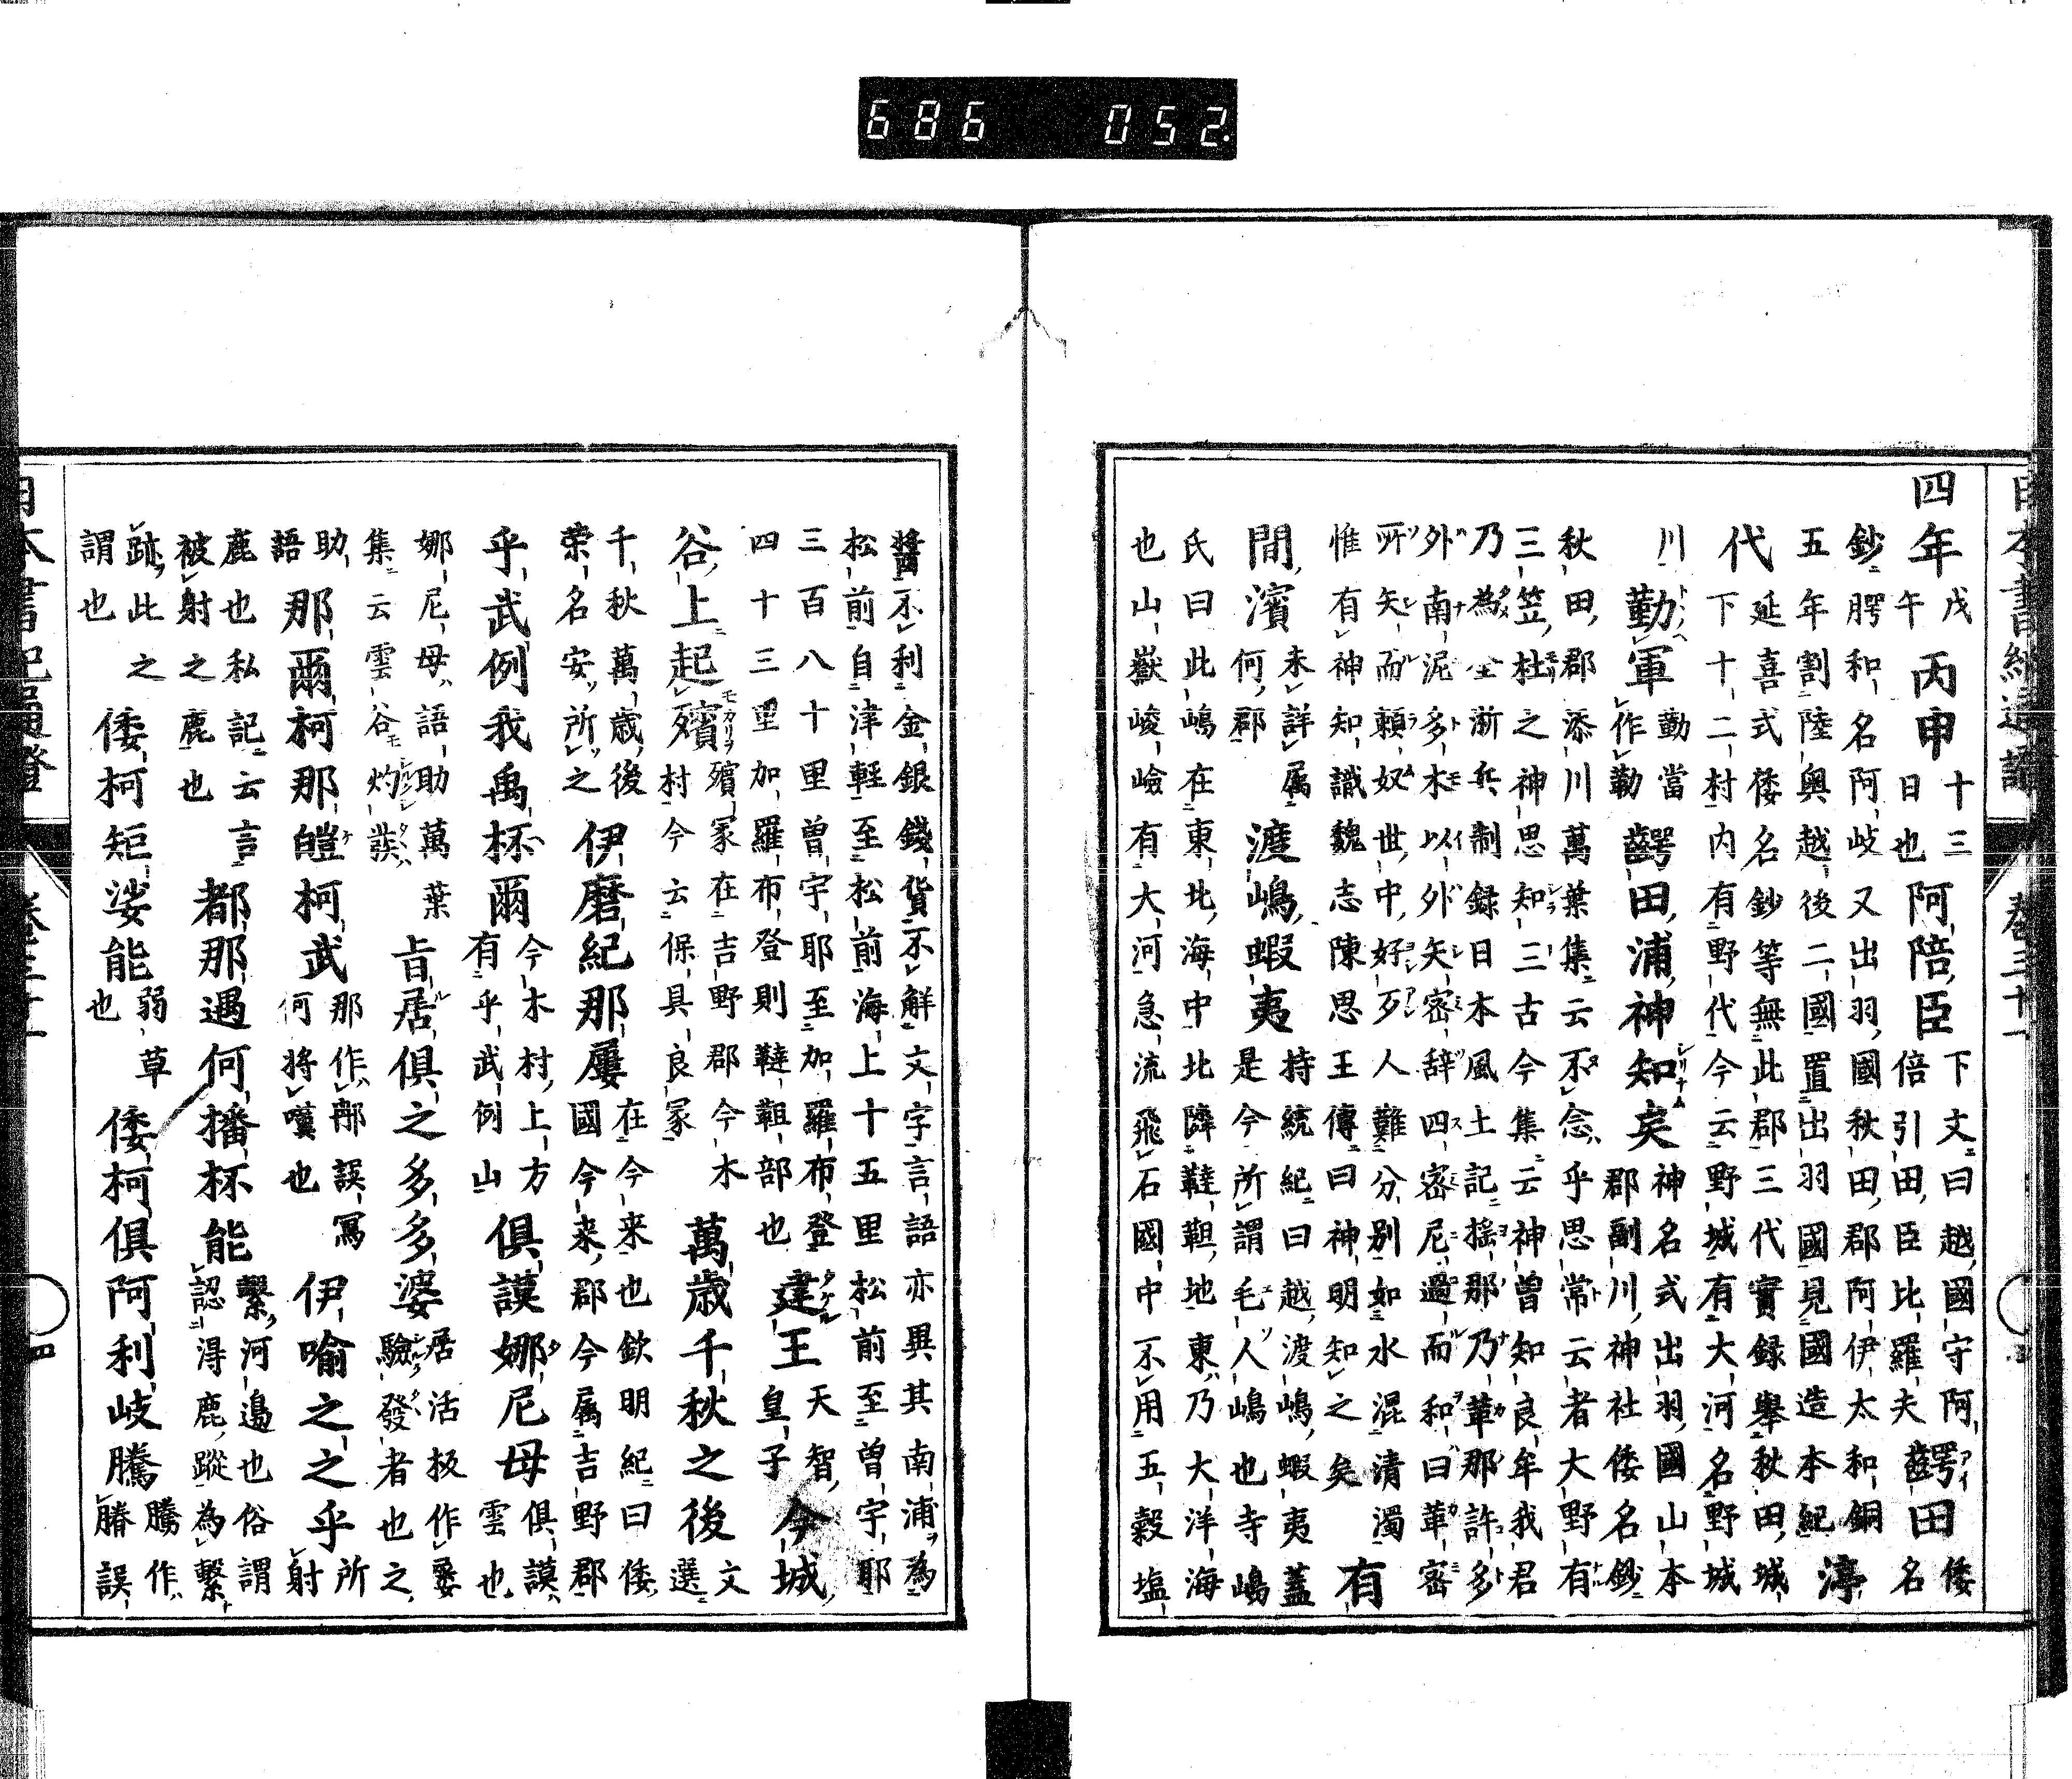 四年 戊午 丙申 十三日也 阿陪臣 下文曰越國守阿倍引田臣比羅夫 齶田 倭名
鈔腭和名阿岐又出羽國秋田郡阿伊太和銅
五年割陸奥越後二國置出羽國見國造本紀 渟
代 延喜式倭名鈔等無此郡三代實録舉秋田城
下十二村内有野代今云野城有大河名野城
川 勤軍 勤當作勒 齶田浦神知矣 神名式出羽國山本郡副川神社倭名鈔
秋田郡添川萬葉集云不念乎思常云者大野有
三笠杜之神思知三古今集云神曽知良牟我君
乃為 全浙兵制録日本風土記揺那乃革那許多
外南泥多木以外矢密辞四密尼過而和曰革密
所矢而頼奴世中好歹人難分別如水混清濁
惟有神知識魏志陳思王傳曰神明知之矣 有
間濱 未詳属何郡 渡嶋蝦夷 持統紀曰越渡嶋蝦夷蓋是今所謂毛人嶋也寺嶋
氏曰此嶋在東北海中北隣韃靼地東乃大洋海
也山嶽峻嶮有大河急流飛石國中不用五穀塩
醬不利金銀錢貨不解文字言語亦異其南浦為
松前自津軽至松前海上十五里松前至曽宇耶
三百八十里曽宇耶至加羅布登
四十三里加羅布登則韃靼部也 建王 天智皇子 今城
谷上起殯 殯冡在吉野郡今木村今云保具良冡 萬歳千秋之後 文選
千秋萬歳後榮名安所之 伊磨紀那屢 在今来也欽明紀曰倭國今来郡今属吉野郡
乎武例我禹杯爾 今木村上方有乎武例山 倶謨娜尼母 倶謨雲也
娜尼母語助萬葉集云雲谷灼發 旨居倶之多多婆 居活板作屡之驗發者也
語助 那爾柯那皚柯武 那作那誤冩何將嘆也 伊喩之之乎 所射
鹿也私記云言被射之鹿也 都那遇何播杯能 繫河邉也俗謂認淂鹿蹤為繫
跡此之謂也 倭柯矩娑能 弱草也 倭柯倶阿利岐騰 騰作誤